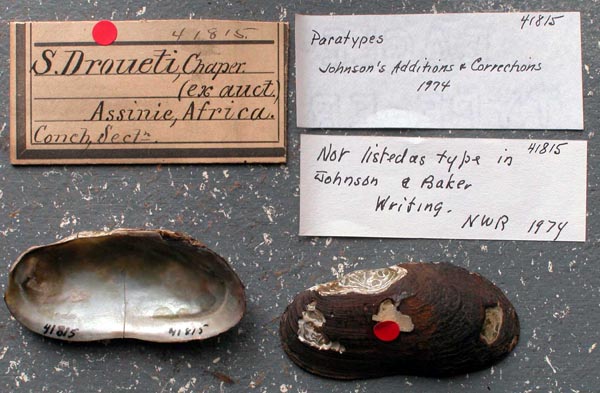 41815.
S. Droueti, Chaper.
(ex auct.)
Assinie, Africa.
Conch. Sectn.
41815
Paratypes
Johnson's Additions & Corrections
1974
41815
Not listed as type in
Johnson & Baker
Writing.
NWR 1974
41815
41815